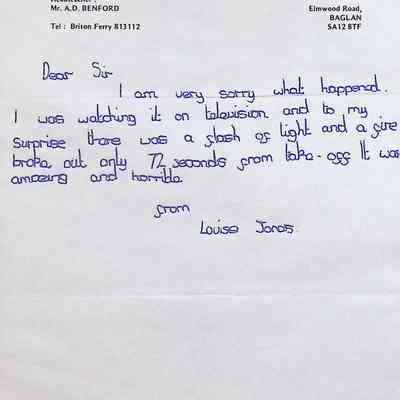 Mr. A.D. BENFORD
Elmwood Road,
BAGLAN
SA12 8TF
Tel : Briton Ferry 813112
Dear Sir
I am very sorry what happened.
I was watching it on television and to my
surprise there was a flash of light and a fire
broke out only 72 seconds from take-off It was
amazing and horrible
from
Louise Jones.